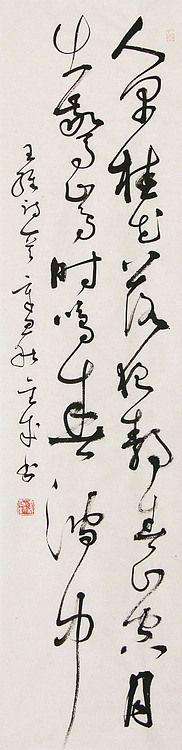 人闲桂花落夜静春山空月
出惊山鸟时鸣春涧中
王维诗一首 秋 书